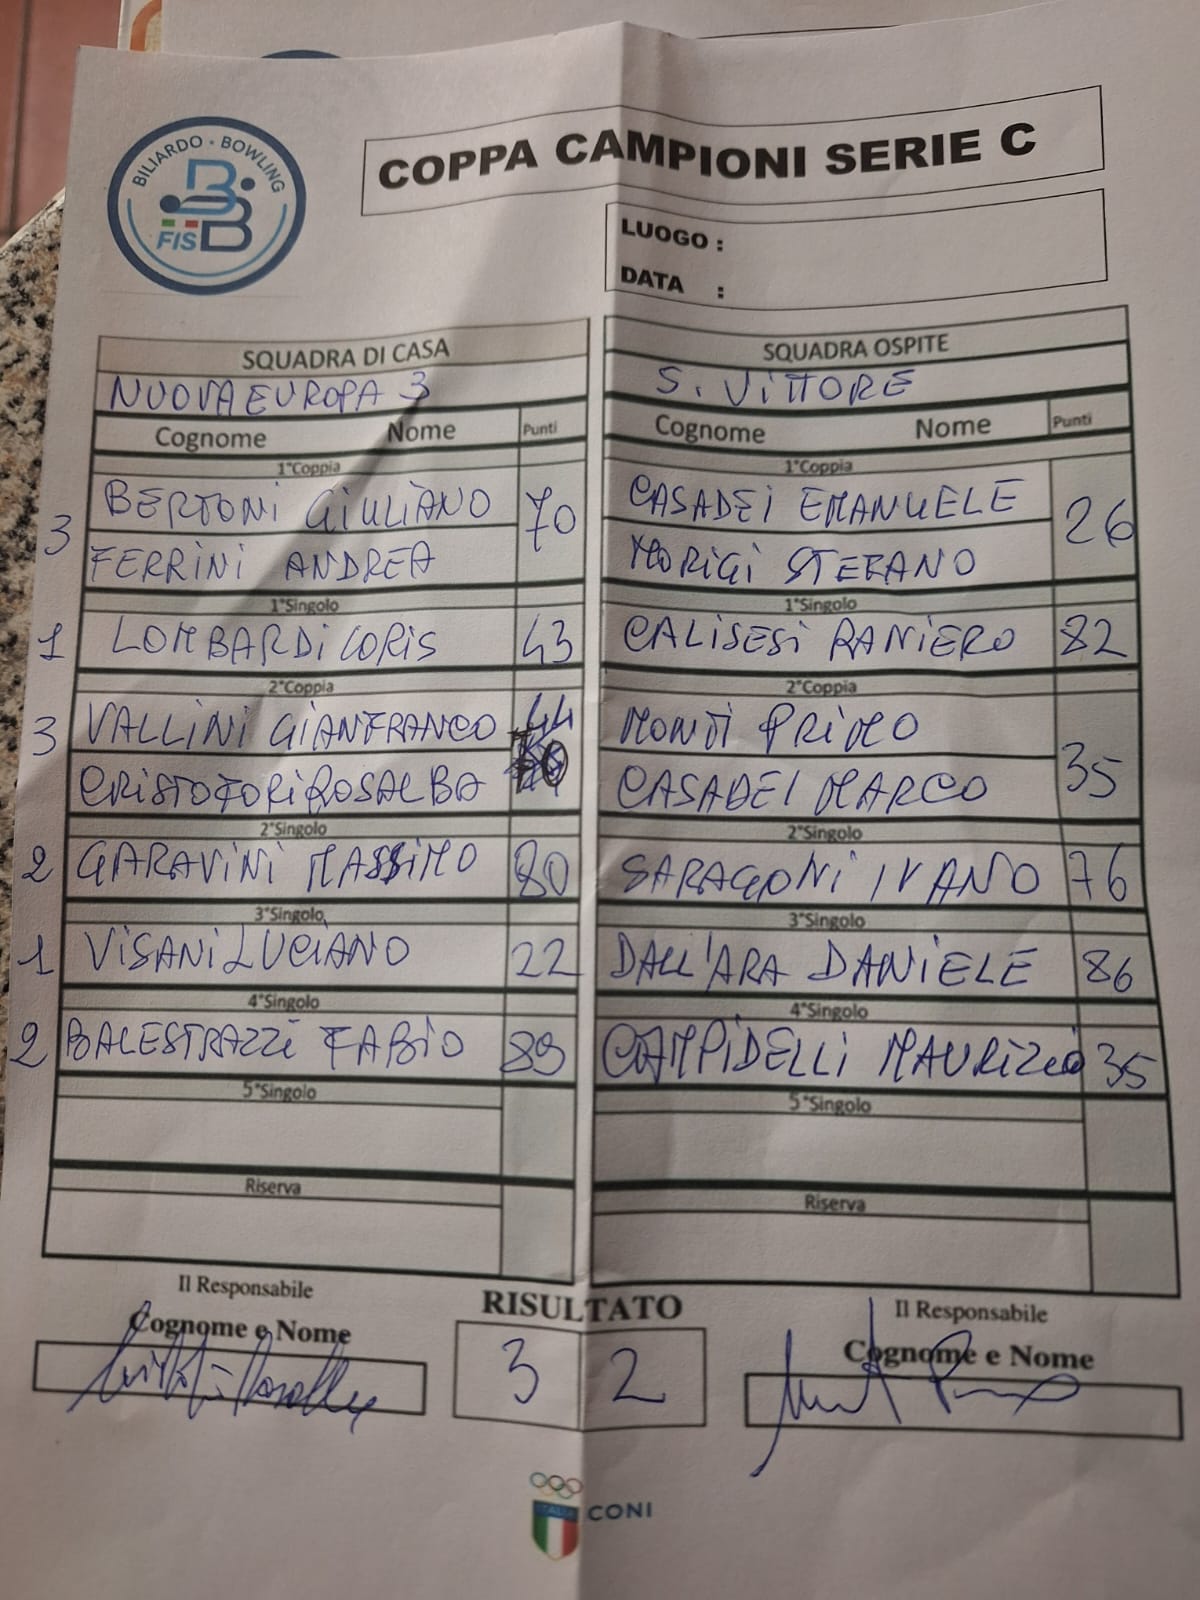 BILIARDO · BOWLING
FISBB
COPPA CAMPIONI SERIE C
LUOGO :
DATA :
SQUADRA DI CASA
NUOVA EUROPA 3
Cognome Nome Punti
1°Coppia
3 BERTONI GIULIANO 70
FERRINI ANDREA
1°Singolo
1 LOMBARDI LORIS 43
2°Coppia
3 VALLINI GIANFRANCO
CRISTOFORI ROSALBA 70
2°Singolo
2 GARAVINI MASSIMO 80
3°Singolo
1 VISANI LUCIANO 22
4°Singolo
2 BALESTRAZZI FABIO 89
5°Singolo
Riserva
SQUADRA OSPITE
S. VITTORE
Cognome Nome Punti
1°Coppia
CASADEI EMANUELE 26
MORIGI STEFANO
1°Singolo
CALISESI RANIERO 82
2°Coppia
MONTI PRIMO 35
CASADEI MARCO
2°Singolo
SARAGONI IVANO 76
3°Singolo
DALL'ARA DANIELE 86
4°Singolo
CAMPIDELLI MAURIZIO 35
5°Singolo
Riserva
Il Responsabile
Cognome e Nome
RISULTATO
3 2
Il Responsabile
Cognome e Nome
ITALIA
CONI